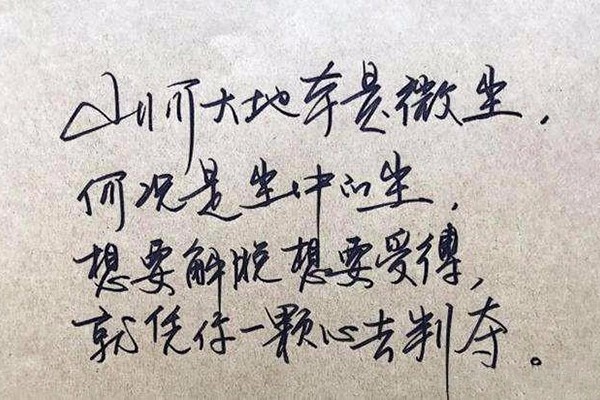 山川河大地本是微尘，
何况是尘中的尘，
想要解脱想要受缚，
就凭你一颗心去判夺。